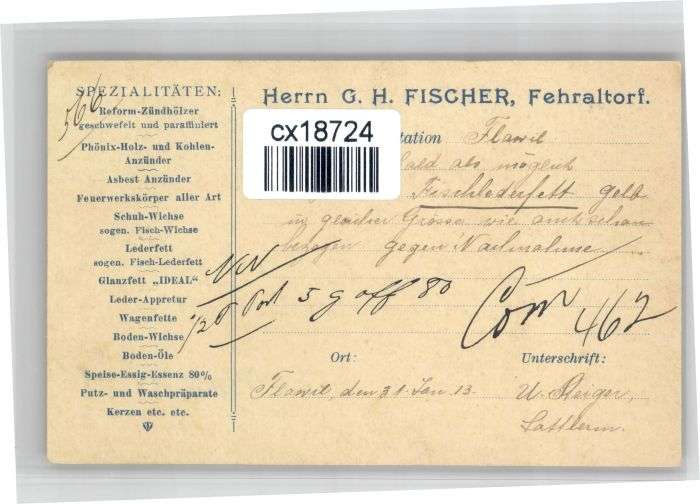 SPEZIALITÄTEN:
566
Reform-Zündhölzer
geschwefelt und paraffiniert
Phönix-Holz- und Kohlen-
Anzünder
Asbest Anzünder
Feuerwerkskörper aller Art
Schuh-Wichse
sogen. Fisch-Wichse
Lederfett
sogen. Fisch-Lederfett
Glanzfett „IDEAL"
Leder-Appretur
Wagenfette
Boden-Wichse
Boden-Öle
Speise-Essig-Essenz 80%
Putz- und Waschpräparate
Kerzen etc. etc.
Herrn G. H. FISCHER, Fehraltorf.
cx18724
tation Flawil
bald als mögent
Fischlederfett gelb
in gleicher Grösse wie auch schon
bezogen gegen Nachnahme
NN
5 g off 80
Com 462
Ort:
Unterschrift:
Flawil, den 31. Jan. 13.
U. Steiger,
Sattlerm.